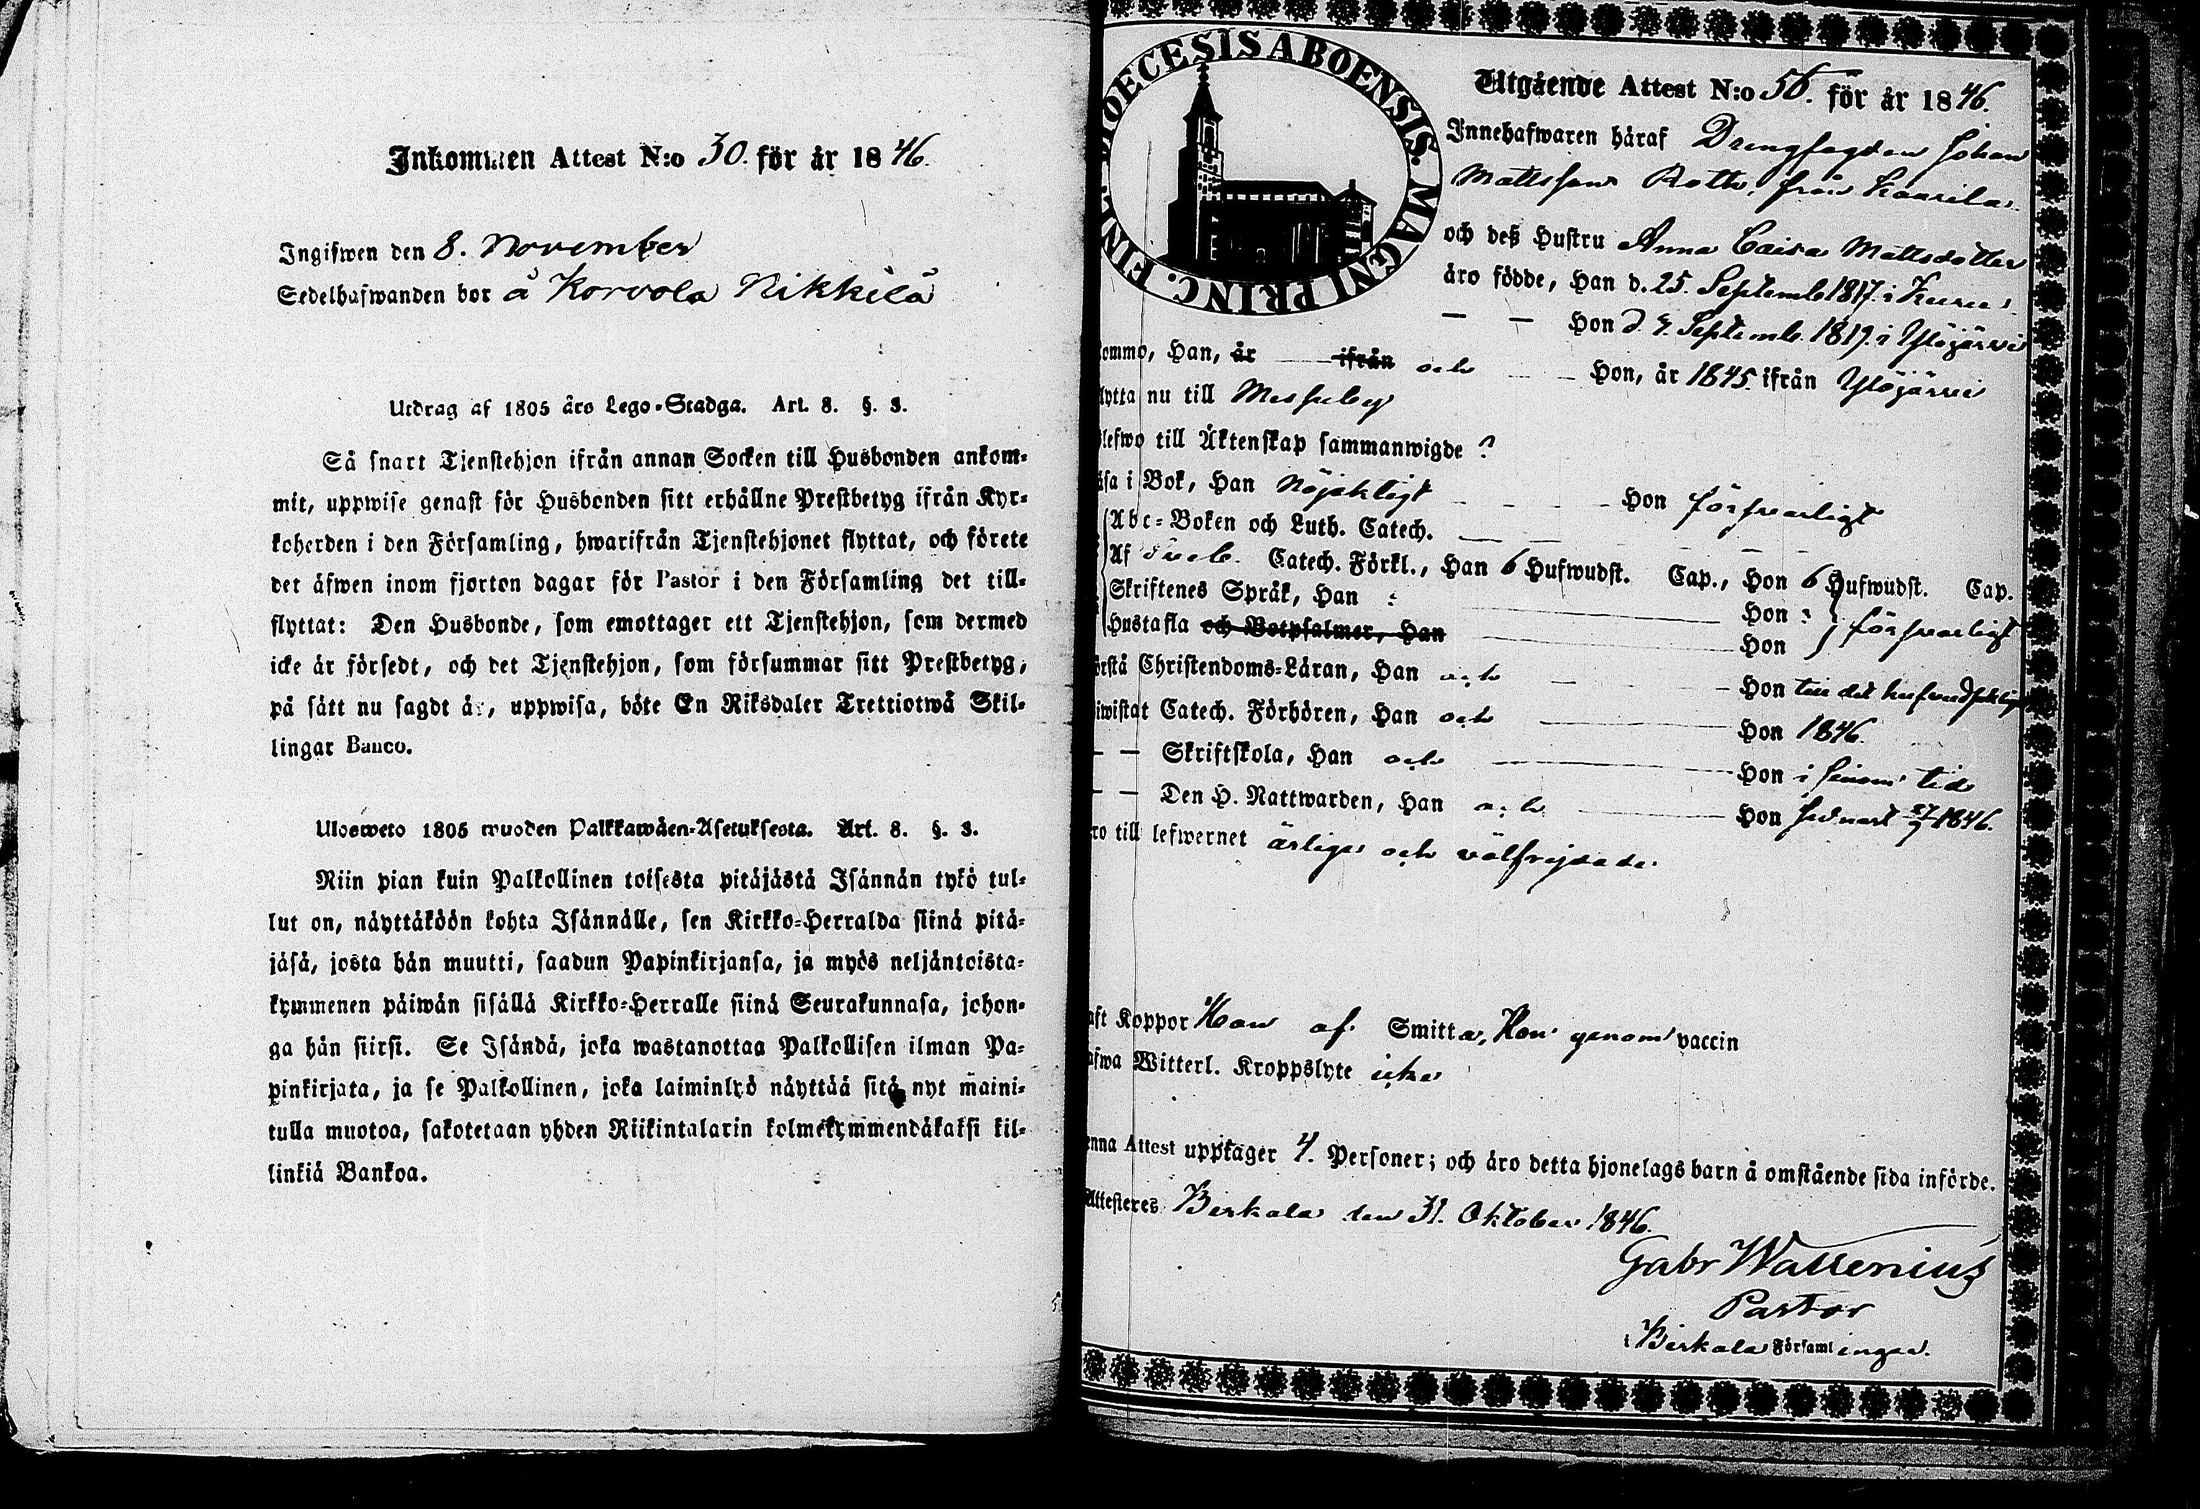 Inkommen Attest N:o 30. för år 1846.
Ingifwen den 8. November
Sedelhafwanden bor å Korvola Nikkilä
Utdrag af 1805 års Lego-Stadga. Art. 8. §. 3.
Så snart Tjenstehjon ifrån annan Socken till Husbonden ankom-
mit, uppwise genast för Husbonden sitt erhållne Prestbetyg ifrån Kyr-
koherden i den Församling, hwarifrån Tjenstehjonet flyttat, och förete
det äfwen inom fjorton dagar för Pastor i den Församling det till-
flyttat: Den Husbonde, som emottager ett Tjenstehjon, som dermed
icke är försedt, och det Tjenstehjon, som försummar sitt Prestbetyg,
på sätt nu sagdt är, uppwisa, böte En Riksdaler Trettiotwå Skil-
lingar Banco.
Ulosweto 1805 wuoden Palkkawäen-Asetuksesta. Art. 8. §. 3.
Niin pian kuin Palkollinen toisesta pitäjästä Isännän tykö tul-
lut on, näyttäköön kohta Isännälle, sen Kirkko-Herralda siinä pitä-
jäsä, josta hän muutti, saadun Papinkirjansa, ja myös neljäntoista-
kymmenen päiwän sisällä Kirkko-Herralle siinä Seurakunnasa, johon-
ga hän siirsi. Se Isändä, joka wastanottaa Palkollisen ilman Pa-
pinkirjata, ja se Palkollinen, joka laiminlyö näyttää sitä nyt maini-
tulla muotoa, sakotetaan yhden Riikintalarin kolmekymmendäkaksi kil-
linkiä Bankoa.
DIOECESIS ABOENSIS. MAGNI PRINC. FINL.
Utgående Attest N:o 56. för år 1846.
Innehafwaren häraf Drengfogden Johan
Mattsson Roth, från Kaarila
och deß Hustru Anna Caisa Mattsdotter
äro födde, Han d. 25. Septemb 1817. i Kuru
— — Hon d. Septemb. 1819. i Ylöjärvi
kommo, Han, år ifrån och Hon, år 1845 ifrån Ylöjärvi
flytta nu till Messuby
blefwo till Äktenskap sammanwigde ?
läsa i Bok, Han nöjaktigt Hon försvarligt
Abc-Boken och Luth. Catech.
Af Catech. Förkl., Han 6 Hufwudst. Cap., Hon 6 Hufwudst. Cap.
Skriftenes Språk, Han : Hon :
Hustafla och Botpsalmer, Han Hon försvarligt
förstå Christendoms-Läran, Han och Hon till det hufvudsakliga
biwistat Catech. Förhören, Han och Hon 1846.
— — Skriftskola, Han och Hon i sinom tid
— — Den H. Nattwarden, Han och Hon sednast 27/9 1846.
äro till lefwernet ärlige och välfrejdade
haft Koppor Han af Smitta, Hon genom vaccin
hafwa Witterl. Kroppslyte icke
Denna Attest upptager 4. Personer; och äro detta hjonelags barn å omstående sida införde.
Attesteres Birkala den 31. Oktober 1846.
Gabr Wallenius
Pastor
i Birkala Församlingen.